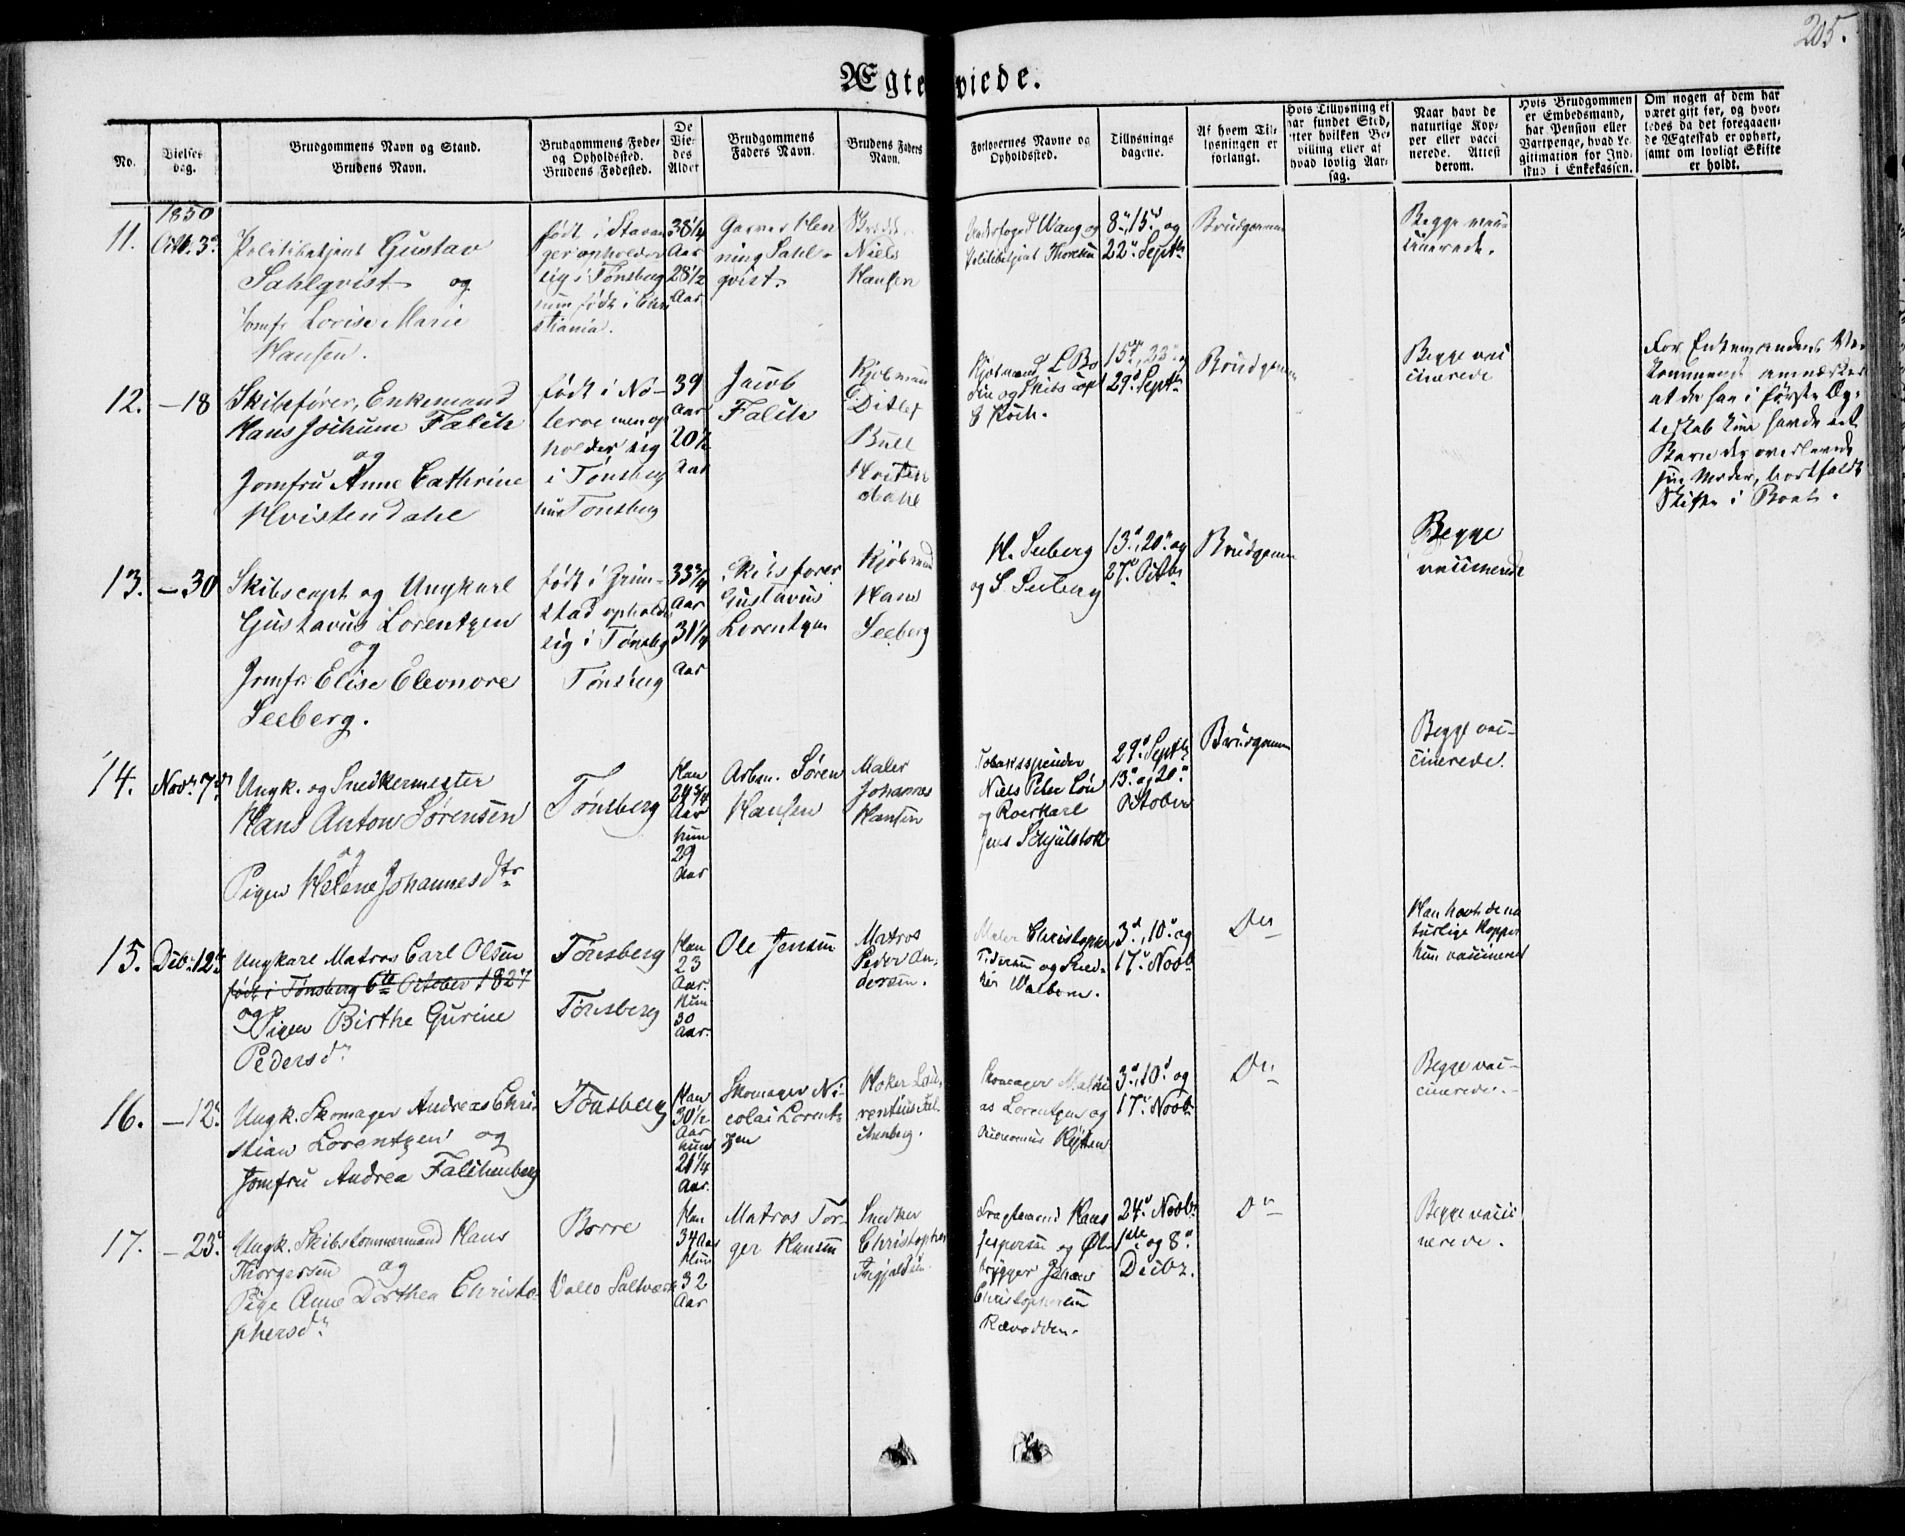 205.
Ægteviede.
No.
Vielses dag.
Brudgommens Navn og Stand.
Brudens Navn.
Brudgommens Føde-
og Opholdssted.
Brudens Fødested.
De
Vie-
des
Alder
Brudgommens
Faders Navn.
Brudens Faders
Navn.
Forlovernes Navne og
Opholdssted.
Tillysnings
dagene.
Af hvem Til-
lysningen er
forlangt.
Hvis Tillysning ei
har fundet Sted,
efter hvilken Be-
villing eller af
hvad lovlig Aar-
sag.
Naar havt de
naturlige Kop-
per eller vacci
nerede. Attest
derom.
Hvis Brudgommen
er Embedsmand,
har Pension eller
Vartpenge, hvad Le-
gitimation for Ind-
skud i Enkekassen.
Om nogen af dem har
været gift før, og hvor-
ledes da det foregaaen-
de Ægteskab er ophørt,
samt om lovligt Skifte
er holdt.
1850
11.
Octb. 3d
Politibetjent Gustav
Sahlqvist og
Jomfr Lovise Marie
Hansen.
født i Stavan
ger opholder
sig i Tønsberg
hun født i Chri
stiania.
38 1/4
Aar
28 1/2
Aar
Garver Hen
ning Sahl-
qvist.
Niels
Hansen
Wang og
Politibetjent Thoresen
8d, 15d og
22d Septb
Brudgommen
Begge vac-
cinerede.
12.
-18
Skibsfører, Enkemand
Hans Jochum Falch
og
Jomfru Anne Cathrine
Hvistendahl
født i Nø-
terøe men op
holder sig
i Tønsberg
hun Tønsberg
39
Aar
20 1/2
Aar
Jacob
Falch
Kjøbmand
Ditlef
Bull
Hvisten
dahl
Kjøbmand L Bo
din og Skibscpt
G Koch.
15de, 22d og
29d Septb
Brudgommen
Begge vac
cinerede
For Enkemandens Ved
kommende anmærkes
at da han i første Æg-
teskab kun havde et
Barn der overlevede
sin Moder, bortfaldt
Skifte i Boet.
13.
-30
Skibscapt og Ungkarl
Gustavus Lorentzen
og
Jomfr. Elise Eleonore
Seeberg.
født i Grim-
stad opholder
sig i Tønsbg
Tønsberg
33 3/4
Aar
31 1/4
Aar
Skibsfører
Gustavus
Lorentzen
Kjøbmand
Hans
Seeberg
H. Seeberg
og S Seeberg
13d, 20d og
27d Octbr
Brudgommen
Begge
vaccinerede
14.
Novb. 7d
Ungk. og Snedkermester
Hans Anton Sørensen
og
Pigen Helene Johannesdtr
Tønsberg
Han
24 3/4
Aar
hun
29
Aar
Arbm. Søren
Hansen
Maler
Johannes
Hansen
Tobaksspinder
Niels Peter Lön
og Roerkarl
Jens Schjulstok
29d Septb
13d og 20d
October
Brudgommen
Begge vac-
cinerede.
15.
Decb. 12d
Ungkarl Matros Carl Olsen
født i Tønsberg 6te October 1827
og
Pigen Birthe Gurine
Pedersdr
Tønsberg
Tønsberg
Han
23
Aar.
Hun
30
Aar.
Ole Jensen
Matros
Peder An-
dersen.
Maler Christopher
Pedersen og Sned-
ker Walborn.
3d, 10d og
17d Novb
Do
Han havt de na
turlige Kopper
hun vaccineret
16.
-12d
Ungk. Skomager Andreas Chri-
stian Lorentzen og
Jomfru Andrea Falchenberg
Tønsberg
Han
30 1/2
Aar
hun
21 1/4
Aar.
Skomager Ni-
colai Lorent-
zen
Høker Lau-
rentius Fal-
chenberg.
Skomager Mathi
as Lorentzen og
3d, 10d og
17d Novb.
Do
Begge vac-
cinerede.
17.
-23d
Ungk. Skibstømmermand Hans
Thorgersen og
Pige Anne Dorthea Christo-
phersdr
Borre
Vallø Saltværk
Han
34 Aar
Hun
32
Aar
Matros Tor-
ger Hansen
Snedker
Christopher
Ingjaldsen.
Dragtmand Hans
Jespersen og Øl-
brygger Johan
Christophersen
Rævodden.
24d Novbr
1ste og 8d
Decbr.
Do
Begge vacci
nerede.